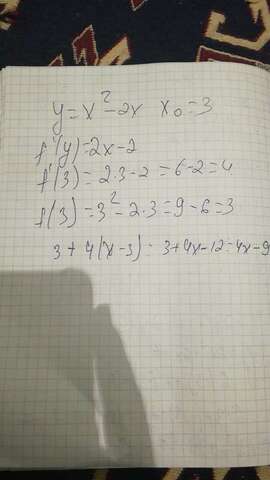 y=x²-2x x₀=3
f'(y)=2x-2
f'(3)=2·3-2=6-2=4
f(3)=3²-2·3=9-6=3
3+4(x-3)=3+4x-12=4x-9